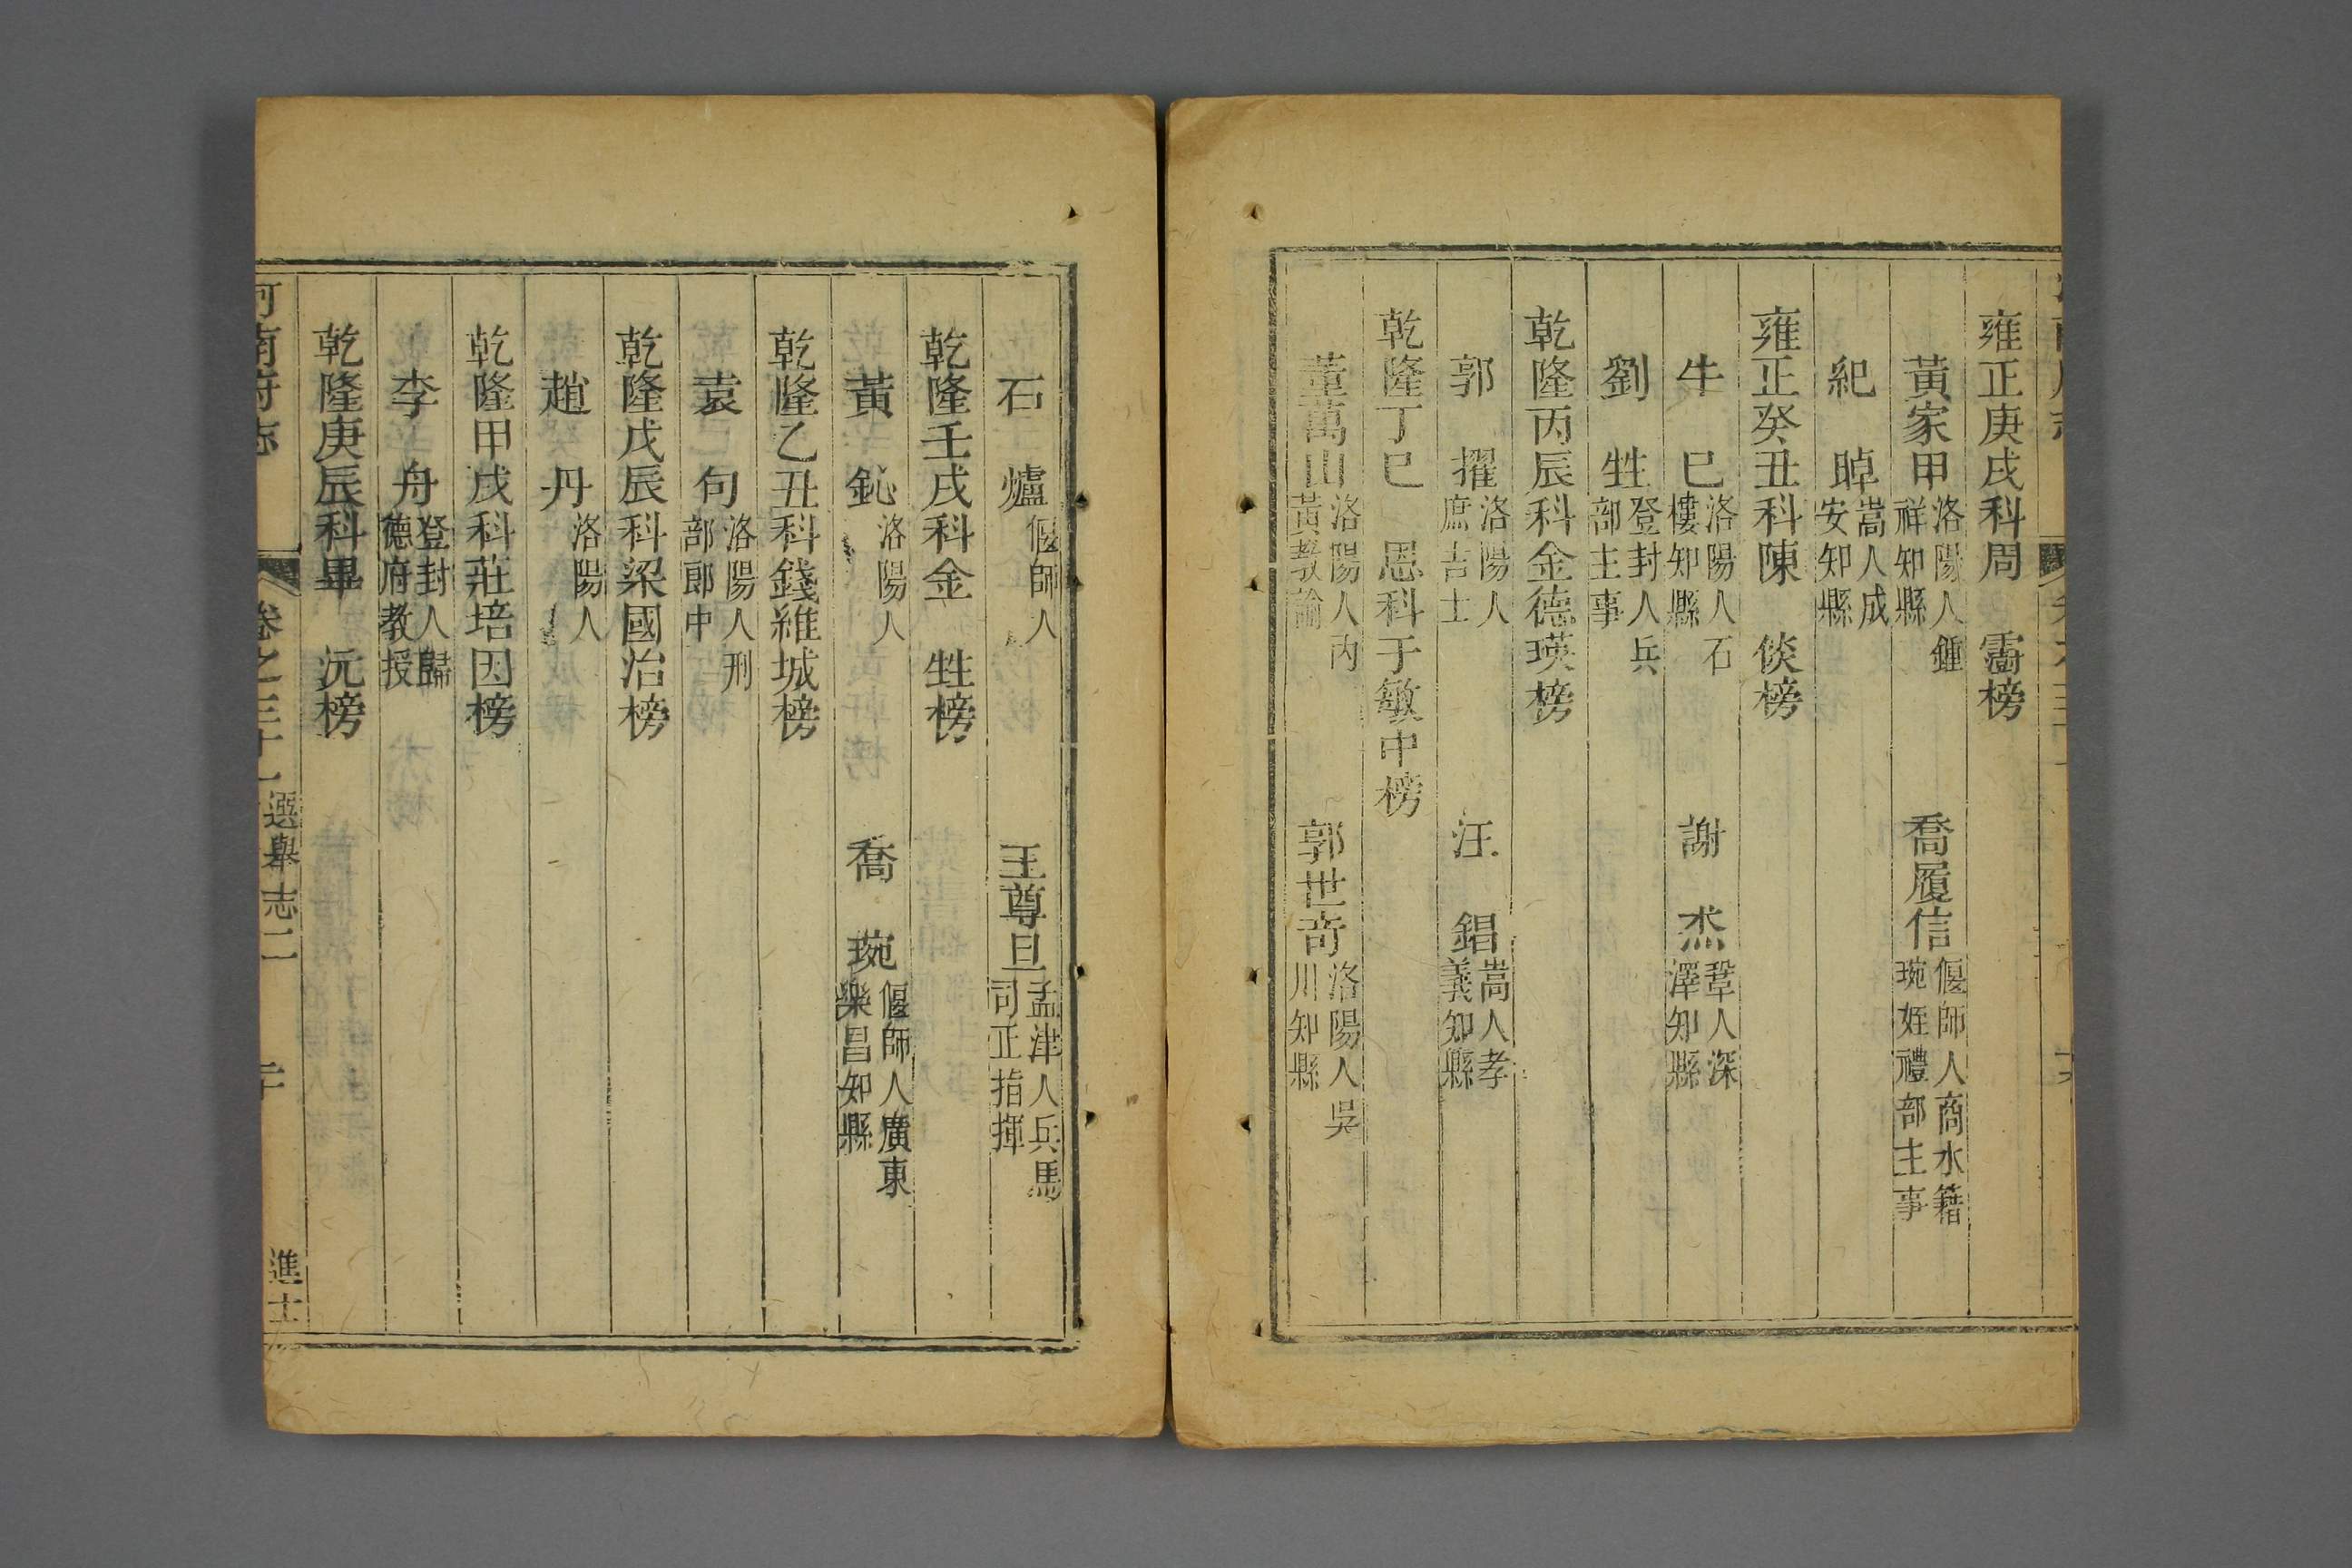 雍正庚戌科周　霨榜
黃家甲洛陽人鍾祥知縣　喬履信偃師人商水籍琬姪禮部主事
紀　晫嵩人成安知縣
雍正癸丑科陳　倓榜
牛　巳洛陽人石樓知縣　謝　杰鞏人深澤知縣
劉　甡登封人兵部主事
乾隆丙辰科金德瑛榜
郭　擢洛陽人庶吉士　汪　錩嵩人孝義知縣
乾隆丁巳　恩科于敏中榜
董萬山洛陽人內黃教諭　郭世奇洛陽人吳川知縣
石　爐偃師人　王尊旦孟津人兵馬司正指揮
乾隆壬戌科金　甡榜
黃　鈊洛陽人　喬　琬偃師人廣東樂昌知縣
乾隆乙丑科錢維城榜
袁　句洛陽人刑部郎中
乾隆戊辰科梁國治榜
趙　丹洛陽人
乾隆甲戌科莊培因榜
李　舟登封人歸德府教授
乾隆庚辰科畢　沅榜
河南府志　卷之三十一　選舉志二　二十　進士